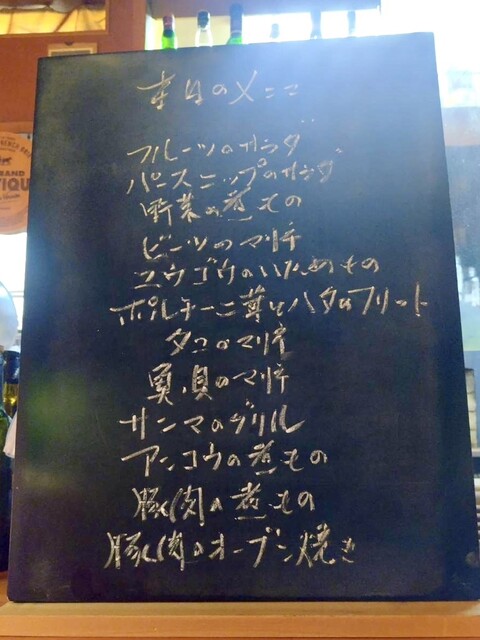 本日のメニュー
フルーツのサラダ
パースニップのサラダ
野菜の煮もの
ビーツのマリネ
ユウゴウのいためもの
ポルチーニ茸とハタのフリット
タコのマリネ
真貝のマリネ
サンマのグリル
アンコウの煮もの
豚肉の煮もの
豚肉のオーブン焼き
FRENCH
GRAND
TIQUE